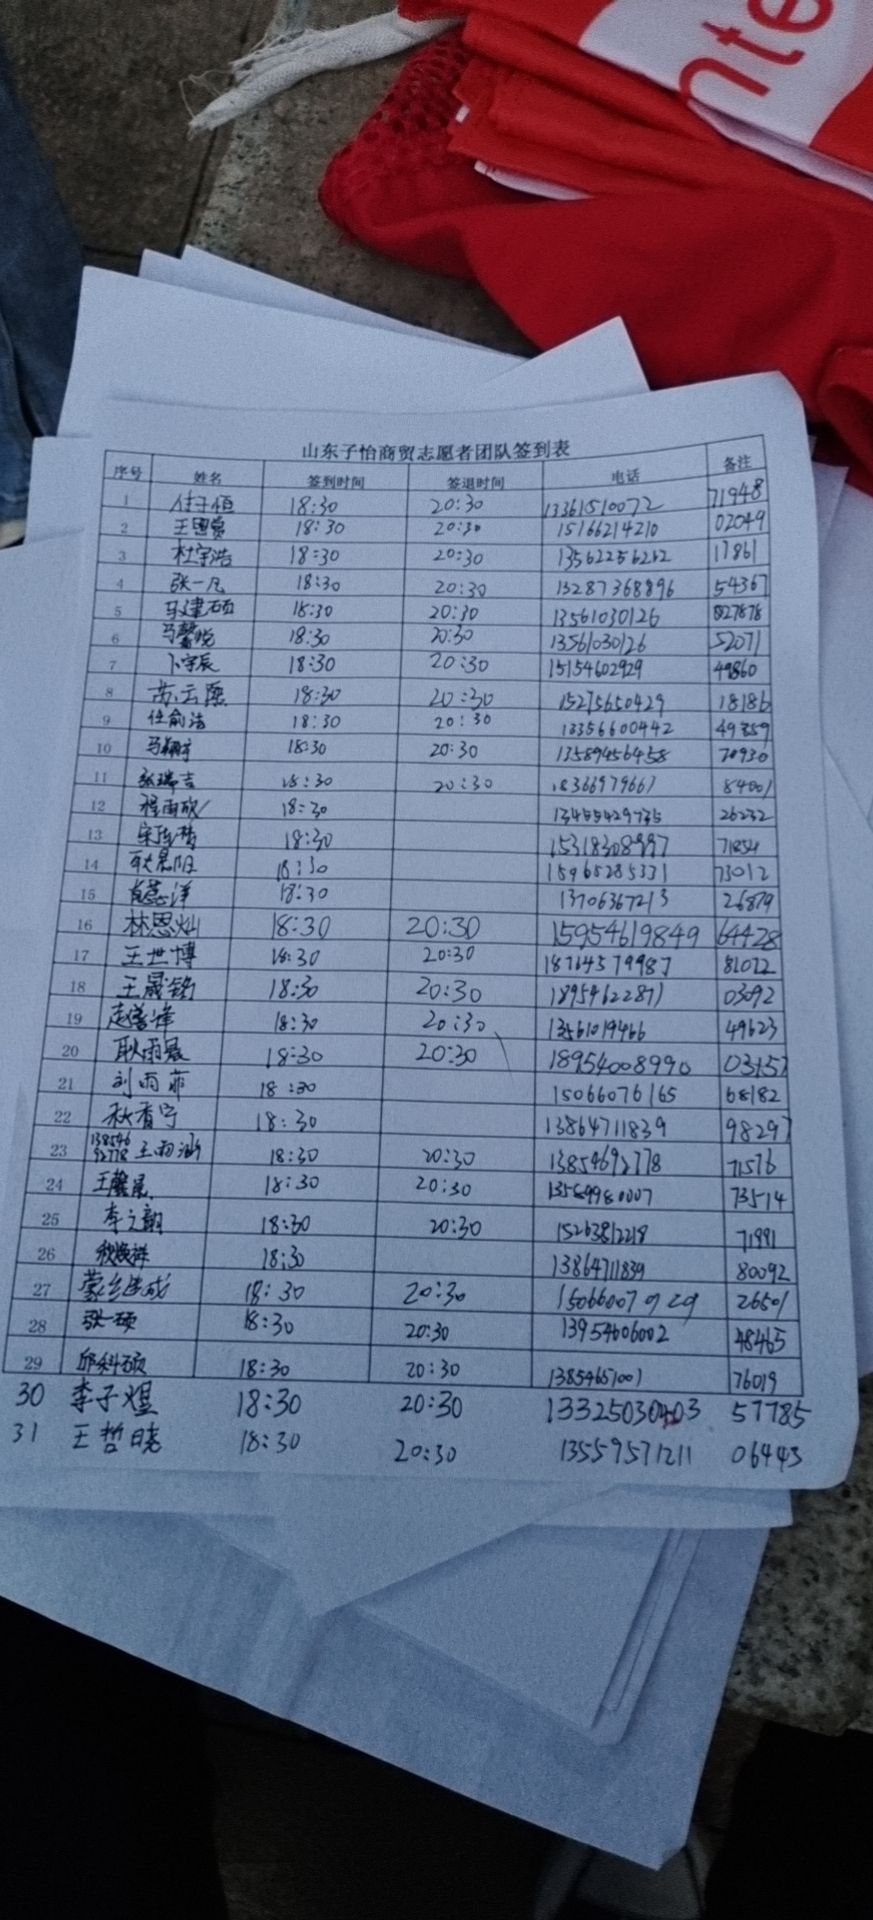 nte
山东子怡商贸志愿者团队签到表
序号 姓名 签到时间 签退时间 电话 备注
1 任子恒 18:30 20:30 13361510072 71948
2 王恩赏 18:30 20:30 15166214210 02049
3 杜宇浩 18:30 20:30 13562256212 17861
4 张一凡 18:30 20:30 13287368896 54367
5 马建硕 18:30 20:30 13561030126 27878
6 马馨悦 18:30 20:30 13561030126 52071
7 卜宇辰 18:30 20:30 15154602929 49860
8 18:30 20:30 15275650429 18186
9 任俞洁 18:30 20:30 13356600442 49859
10 马翔宇 18:30 20:30 13589456458 70930
11 张瑞吉 18:30 20:30 18366979661 84001
12 程雨欣 18:30 13455429735 26232
13 18:30 15318308997 71854
14 耿晨阳 18:30 15965285331 73012
15 18:30 13706367213 26879
16 林恩灿 18:30 20:30 15954619849 64428
17 王世博 18:30 20:30 18714579987 81072
18 王晟铭 18:30 20:30 18954622871 03092
19 18:30 20:30 13561019466 49623
20 耿雨晨 18:30 20:30 18954008990 03157
21 刘雨菲 18:30 15066076165 68182
22 秋香宁 18:30 13864711839 98297
23 13854692778 王雨涵 18:30 20:30 13854692778 71576
24 18:30 20:30 13589980007 73514
25 李之韵 18:30 20:30 15263812218 71991
26 18:30 13864711839 80092
27 18:30 20:30 15066007929 26501
28 张一硕 18:30 20:30 13954606002 48465
29 邱科硕 18:30 20:30 13854651001 76019
30 李子煜 18:30 20:30 13325030403 57785
31 王哲晓 18:30 20:30 13559571211 06443